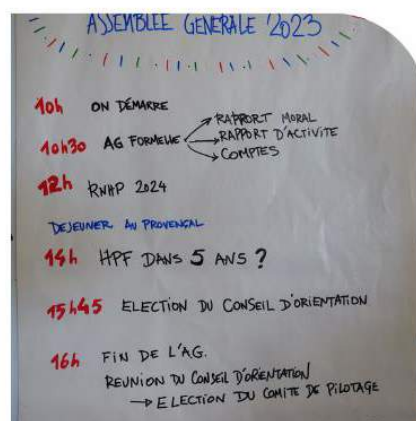 ASSEMBLEE GENERALE 2023
10h ON DÉMARRE
10h30 AG FORMELLE → RAPPORT MORAL
→ RAPPORT D'ACTIVITE
→ COMPTES
12h RNHP 2024
DEJEUNER AU PROVENÇAL
14h HPF DANS 5 ANS ?
15h45 ELECTION DU CONSEIL D'ORIENTATION
16h FIN DE L'AG.
REUNION DU CONSEIL D'ORIENTATION
→ ELECTION DU COMITE DE PILOTAGE